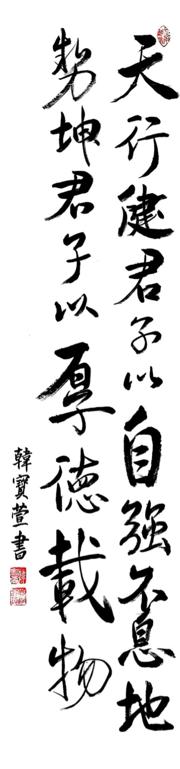 天行健君子以自強不息地
勢坤君子以厚德載物
韓寶萱書